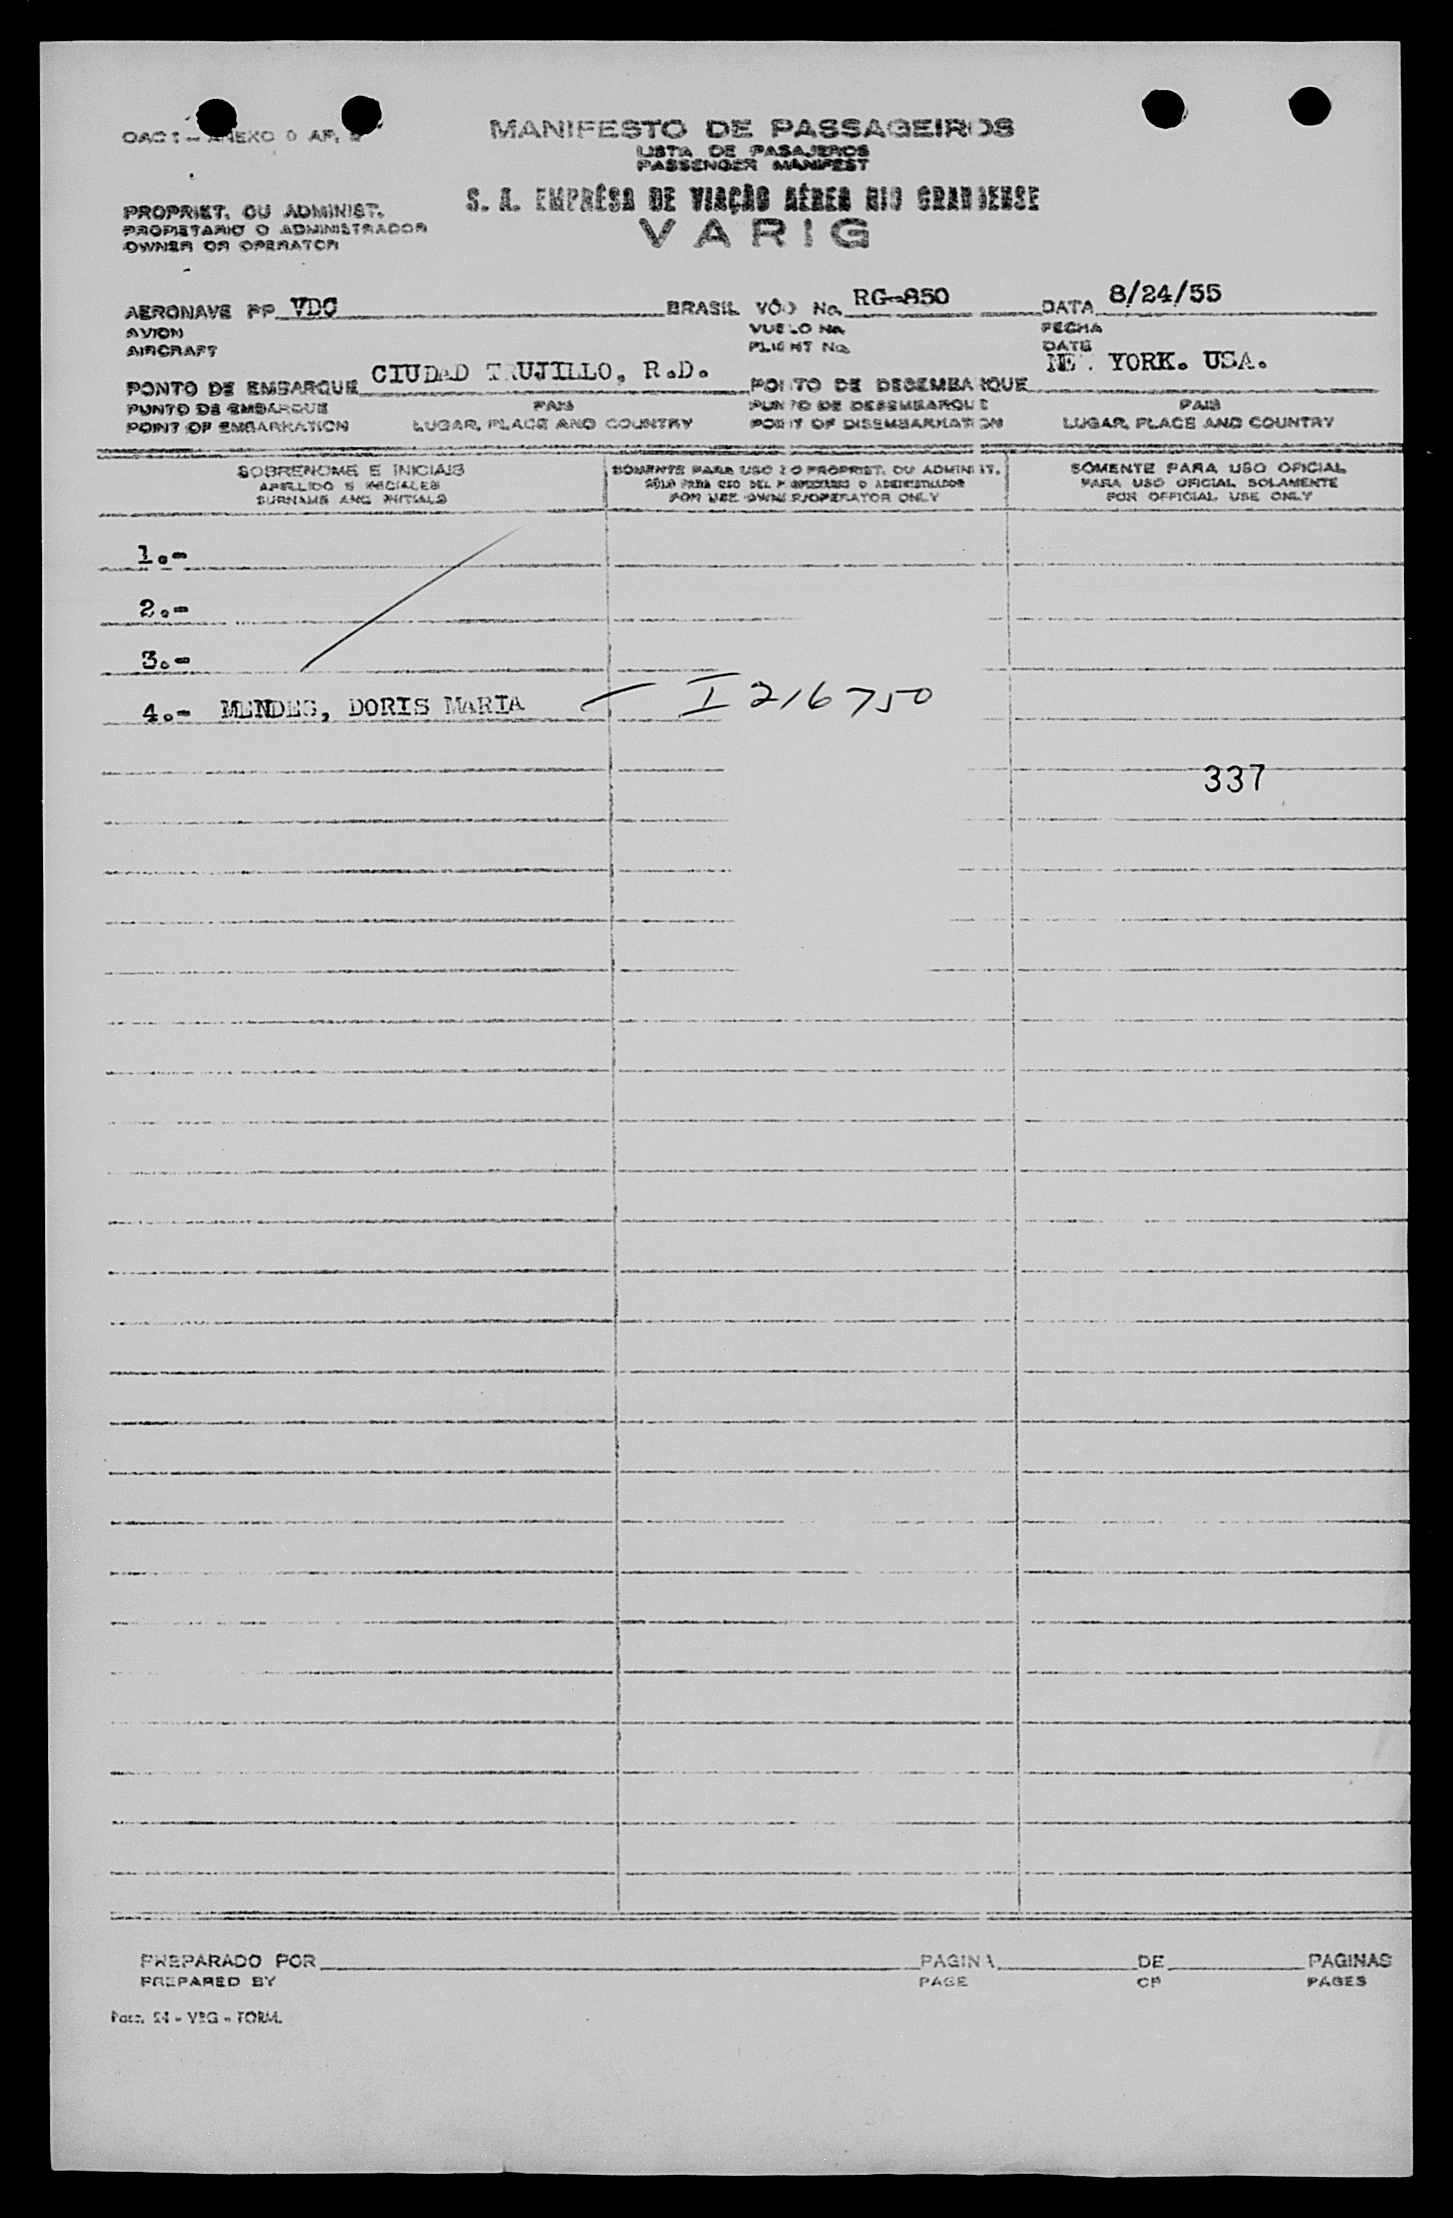 MANIFESTO DE PASSAGEIROS
LISTA DE PASAJEROS
PASSENGER MANIFEST
S. A. EMPRÊSA DE VIAÇÃO AÉREA RIO GRANDENSE
VARIG
PROPRIET. OU ADMINIST.
PROPIETARIO O ADMINISTRADOR
OWNER OR OPERATOR
AERONAVE PP VDC BRASIL VÔO No. RG-850 DATA 8/24/55
AVION VUELO No. FECHA
AIRCRAFT FLIGHT No. DATE
PONTO DE EMBARQUE CIUDAD TRUJILLO, R.D. PONTO DE DESEMBARQUE NEW YORK. USA.
PUNTO DE EMBARQUE PAIS PUNTO DE DESEMBARQUE PAIS
POINT OF EMBARKATION LUGAR, PLACE AND COUNTRY POINT OF DISEMBARKATION LUGAR, PLACE AND COUNTRY
SOBRENOME E INICIAIS
APELLIDO E INICIALES
SURNAME AND INITIALS
SOMENTE PARA USO DO PROPRIET. OU ADMINIST.
SÓLO PARA USO DEL PROPIETARIO O ADMINISTRADOR
FOR USE OWNER/OPERATOR ONLY
SOMENTE PARA USO OFICIAL
PARA USO OFICIAL SOLAMENTE
FOR OFFICIAL USE ONLY
1.-
2.-
3.-
4.- MENDES, DORIS MARIA — I 216750
337
PREPARADO POR PAGINA DE PAGINAS
PREPARED BY PAGE OF PAGES